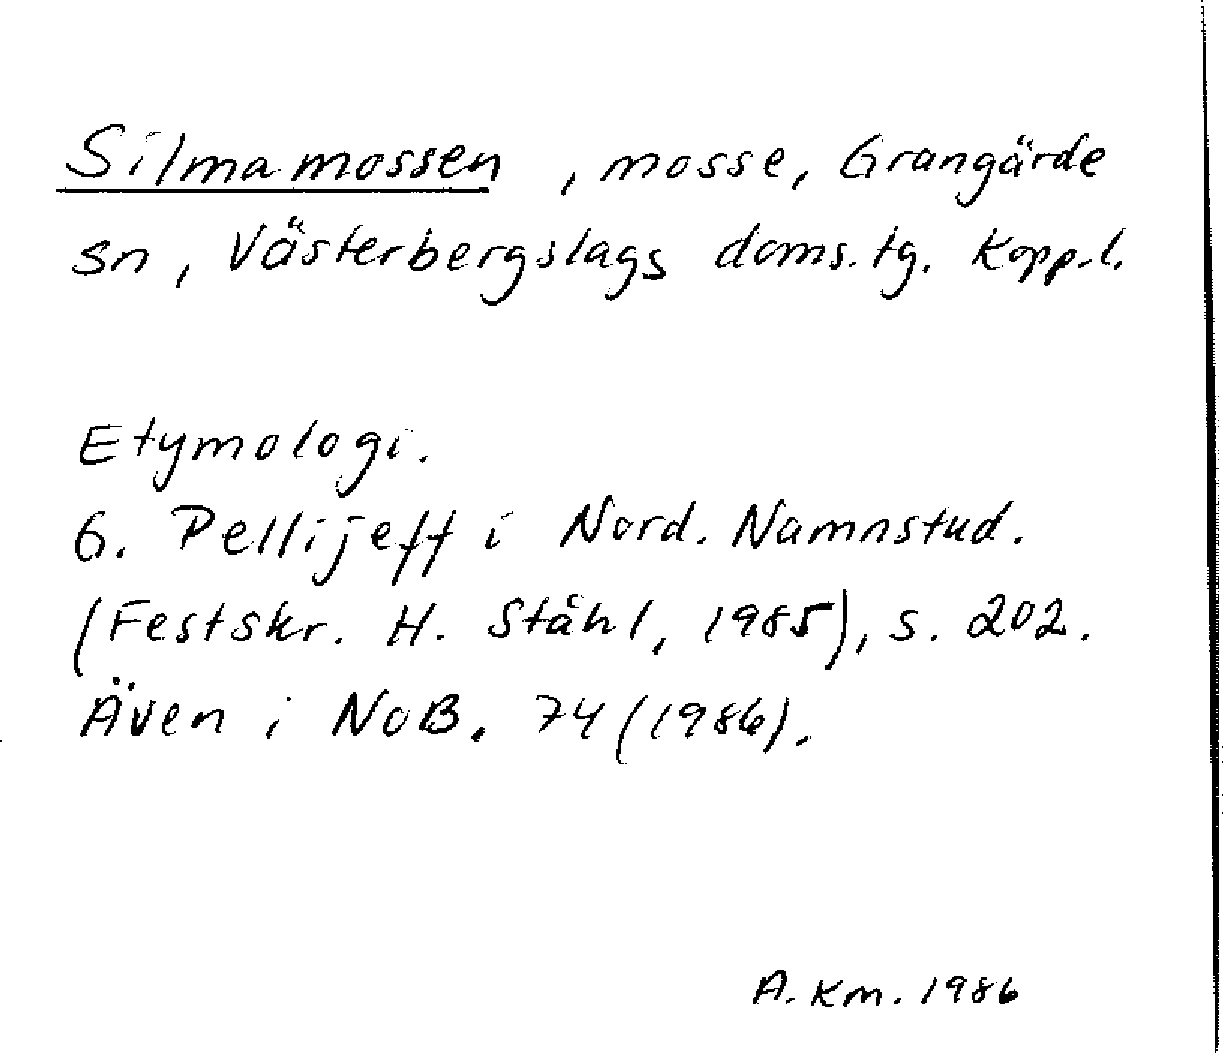 Silmamossen, mosse, Grangärde
sn, Västerbergslags doms.tg. Kopp.l.
Etymologi.
G. Pellijeff i Nord. Namnstud.
(Festskr. H. Ståhl, 1985), s. 202.
Även i NoB. 74 (1986).
A. Km. 1986